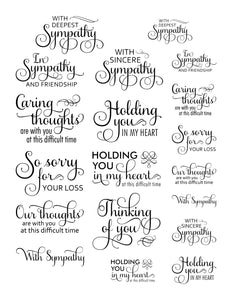 WITH
DEEPEST
Sympathy
In
Sympathy
AND FRIENDSHIP
Caring
thoughts
are with you
at this difficult time
So sorry
for
YOUR LOSS
Our thoughts
are with you
at this difficult time
With Sympathy
WITH
SINCERE
Sympathy
Holding
you
IN MY HEART
HOLDING
YOU
in my heart
at this difficult time
Thinking
of you
HOLDING
YOU
in my heart
at this difficult time
WITH
DEEPEST
Sympathy
In
Sympathy
AND FRIENDSHIP
Caring
thoughts
are with you
at this difficult time
So sorry
for
YOUR LOSS
Our thoughts
are with you
at this difficult time
With Sympathy
WITH
SINCERE
Sympathy
Holding
you
IN MY HEART